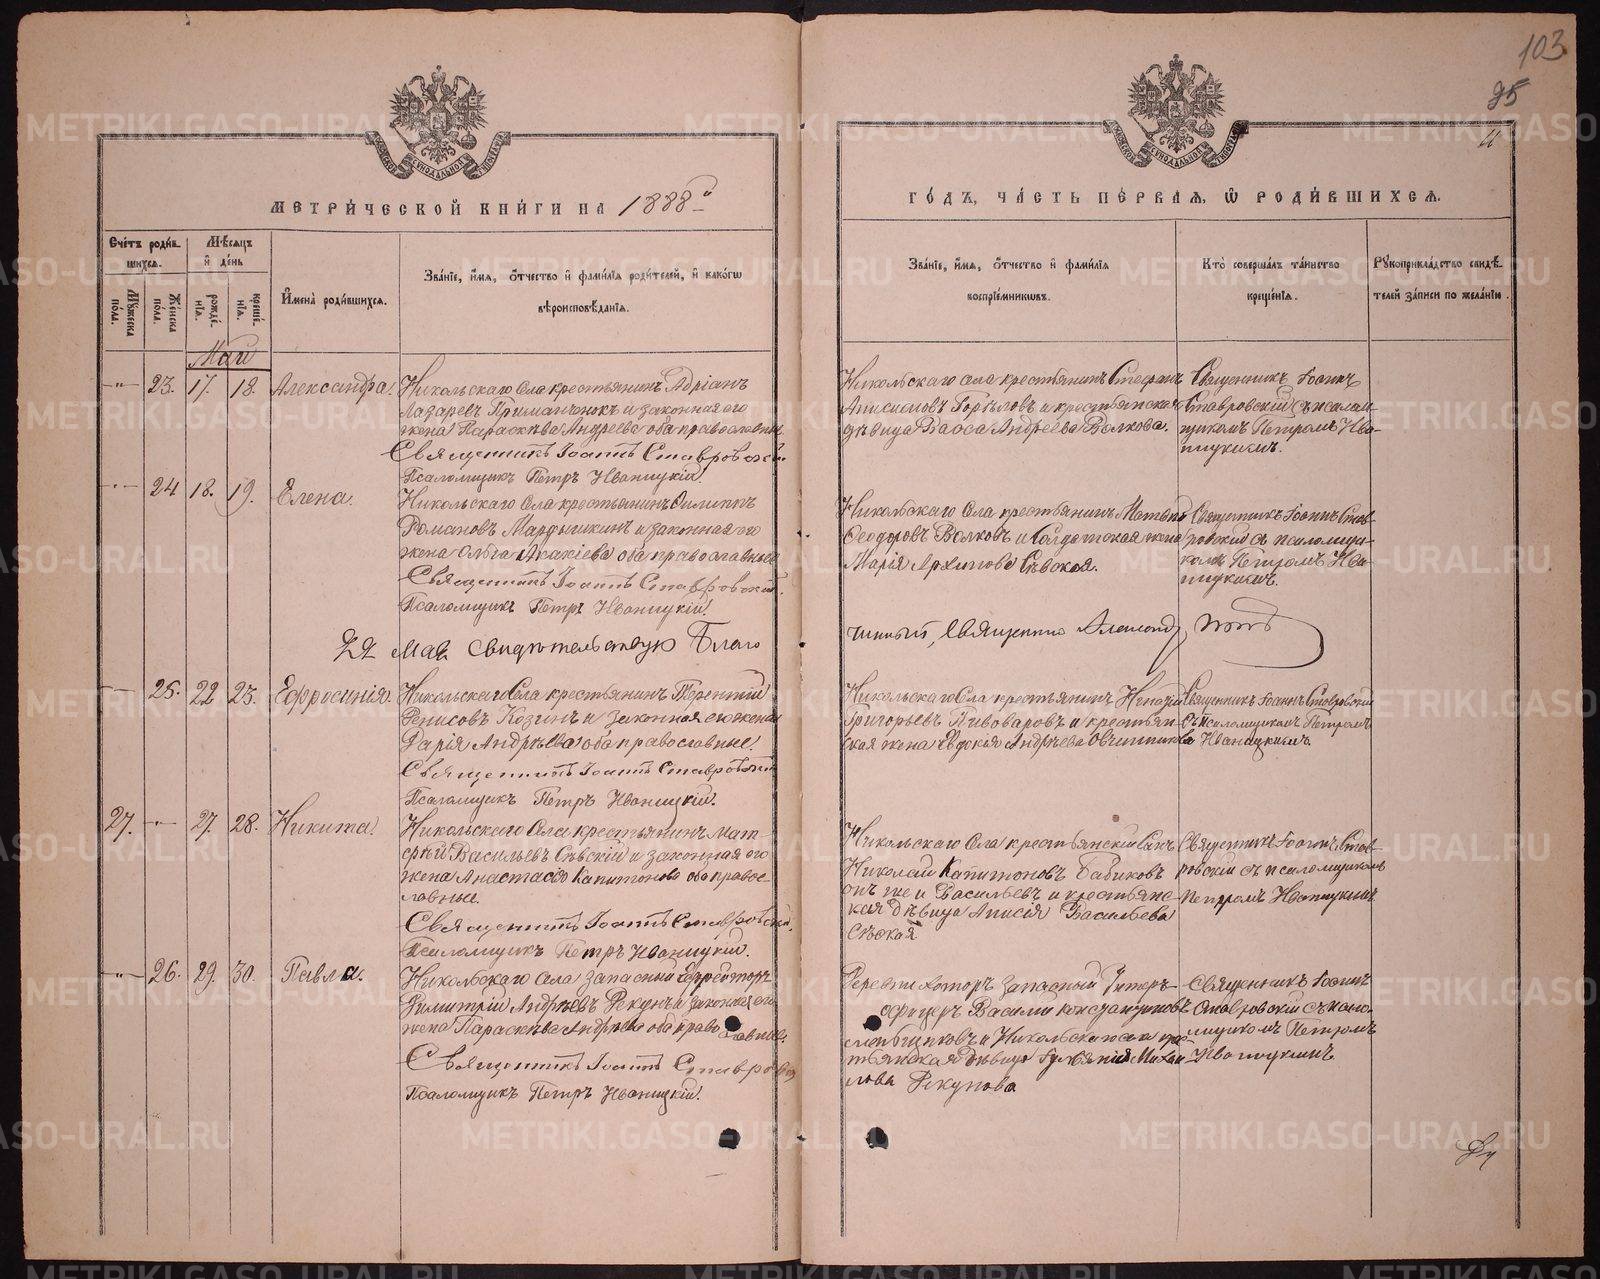 103
95
МЕТРИЧЕСКОЙ КНИГИ НА 1888й
ГОДЪ, ЧАСТЬ ПЕРВАЯ, Ѿ РОДИВШИХСЯ.
Счетъ родившихся.
Мужеска пола.
Женска пола.
Мѣсяцъ и день
рожденія.
крещенія.
Имена родившихся.
Званіе, имя, отчество и фамилія родителей, и какогѡ
вѣроисповѣданія.
Званіе, имя, отчество и фамилія
воспріемникѡвъ.
Кто совершалъ таинство
крещенія.
Рукоприкладство свидѣ-
телей записи по желанію.
Май
23. 17. 18. Александра.
Никольскаго села крестьянинъ Адріанъ
Лазаревъ Приманченокъ и законная его
жена Параскѣва Андреева оба православные
Священникъ Іоаннъ Ставровскій
Псаломщикъ Петръ Иваницкій.
Никольскаго села крестьянинъ Стефанъ
Анисимовъ Горбуловъ и крестьянская
дѣвица Васса Андреева Волкова.
Священникъ Іоаннъ
Ставровскій съ псалом-
щикомъ Петромъ Ива-
ницкимъ.
24 18. 19. Елена.
Никольскаго села крестьянинъ Филиппъ
Романовъ Мартышкинъ и законная его
жена Ольга Акакіева оба православные
Священникъ Іоаннъ Ставровскій.
Псаломщикъ Петръ Иваницкій.
Никольскаго села крестьянинъ
Феодоровъ Волковъ и Солдатская жена
Марія Архипова Сѣвская.
Священникъ Іоаннъ Став-
ровскій съ псаломщи-
комъ Петромъ Ива-
ницкимъ.
22 Мая Свидѣтельствую Благо
чинный, Священникъ
25. 22 23. Ефросинія.
Никольскаго Села крестьянинъ Терентій
Денисовъ Козинъ и законная его жена
Дарія Андрѣева оба православные.
Священникъ Іоаннъ Ставровскій
Псаломщикъ Петръ Иваницкій.
Никольскаго Села крестьянинъ Игнатій
Григорьевъ Пивоваровъ и крестьян-
ская жена Евдокія Андрѣева Овчинникова
Священникъ Іоаннъ Ставровскій
съ псаломщикомъ Петромъ
Иваницкимъ.
27. 27. 28. Никита.
Никольскаго Села крестьянинъ Мат-
ѳѣй Васильевъ Сѣвскій и законная его
жена Анастасія Капитонова оба право-
славные.
Священникъ Іоаннъ Ставровскій.
Псаломщикъ Петръ Иваницкій.
Никольскаго Села крестьянскій сынъ
Николай Капитоновъ Бабиковъ
онъ же и Васильевъ и крестьянс-
кая дѣвица Анисія Васильева
Сѣвская
Священникъ Іоаннъ Став-
ровскій съ псаломщикомъ
Петромъ Иваницкимъ
26. 29. 30. Павла.
Никольскаго Села запасный Ефрейторъ
Димитрій Андрѣевъ Рекунъ и законная его
жена Параскѣва Андрѣева оба право славные.
Священникъ Іоаннъ Ставровскій
Псаломщикъ Петръ Иваницкій.
Деревни запасной Унтеръ-
офицеръ Василій Константиновъ
и Никольскаго села крес-
тьянская дѣвица Михаи-
лова Рекунова
Священникъ Іоаннъ
Ставровскій съ псало-
мщикомъ Петромъ
Иваницкимъ
METRIKI.GASO-URAL.RU